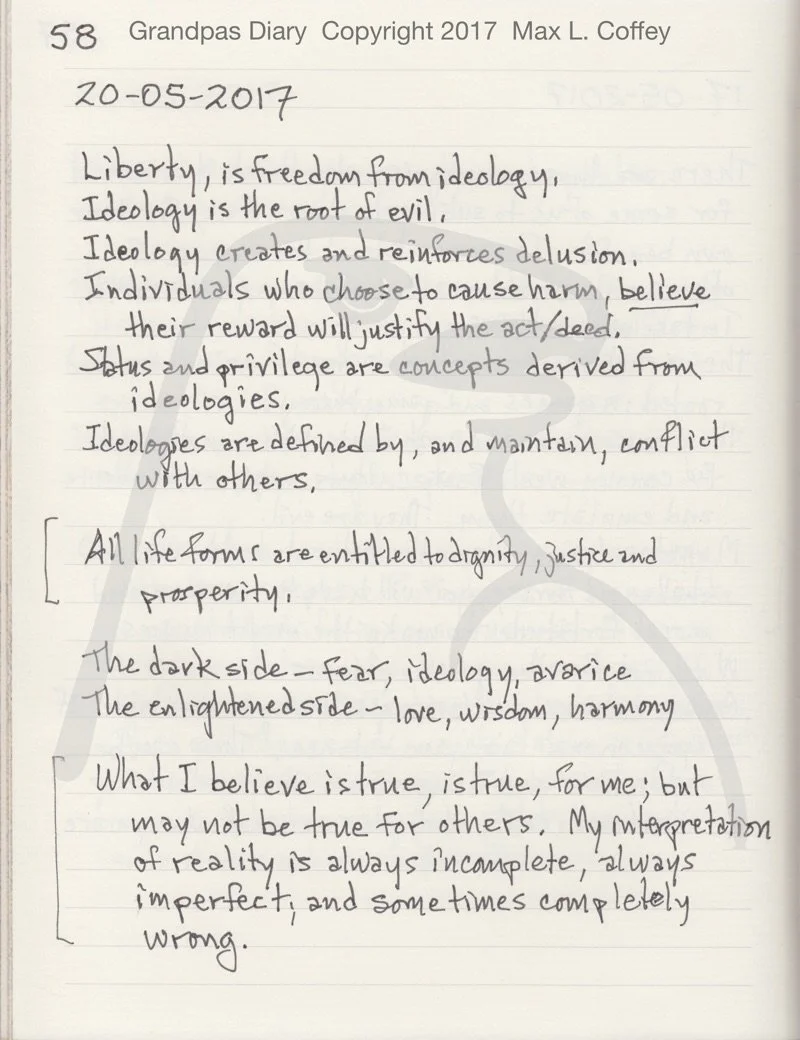 58 Grandpas Diary Copyright 2017 Max L. Coffey
20-05-2017
Liberty, is freedom from ideology.
Ideology is the root of evil.
Ideology creates and reinforces delusion.
Individuals who choose to cause harm, believe
their reward will justify the act/deed.
Status and privilege are concepts derived from
ideologies.
Ideologies are defined by, and maintain, conflict
with others.
All life forms are entitled to dignity, justice and
prosperity.
The dark side – fear, ideology, avarice
The enlightened side – love, wisdom, harmony
What I believe is true, is true, for me; but
may not be true for others. My interpretation
of reality is always incomplete, always
imperfect; and sometimes completely
wrong.